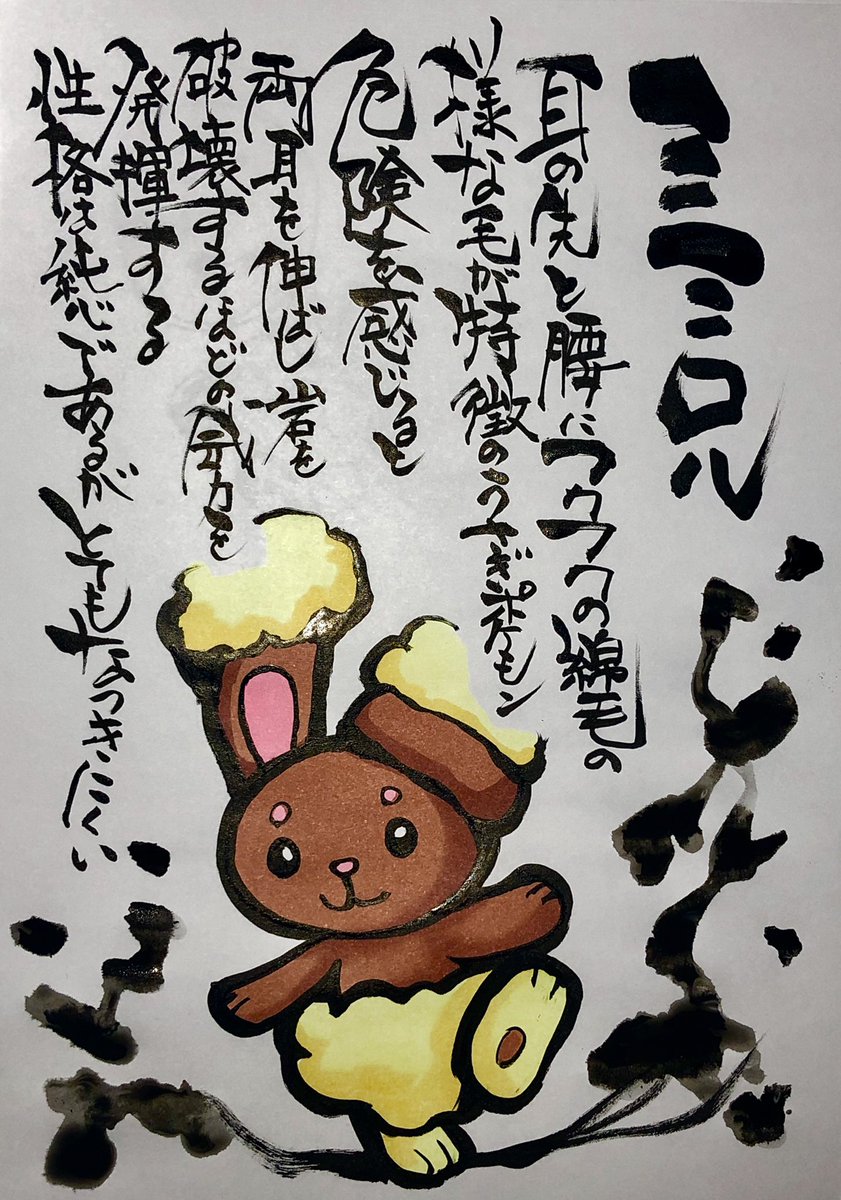 ミミロル
耳の先と腰にフワフワの綿毛の
様な毛が特徴のうさぎポケモン
危険を感じると
両耳を伸ばし岩を
破壊するほどの威力を
発揮する
性格は純心であるがとてもなつきにくい